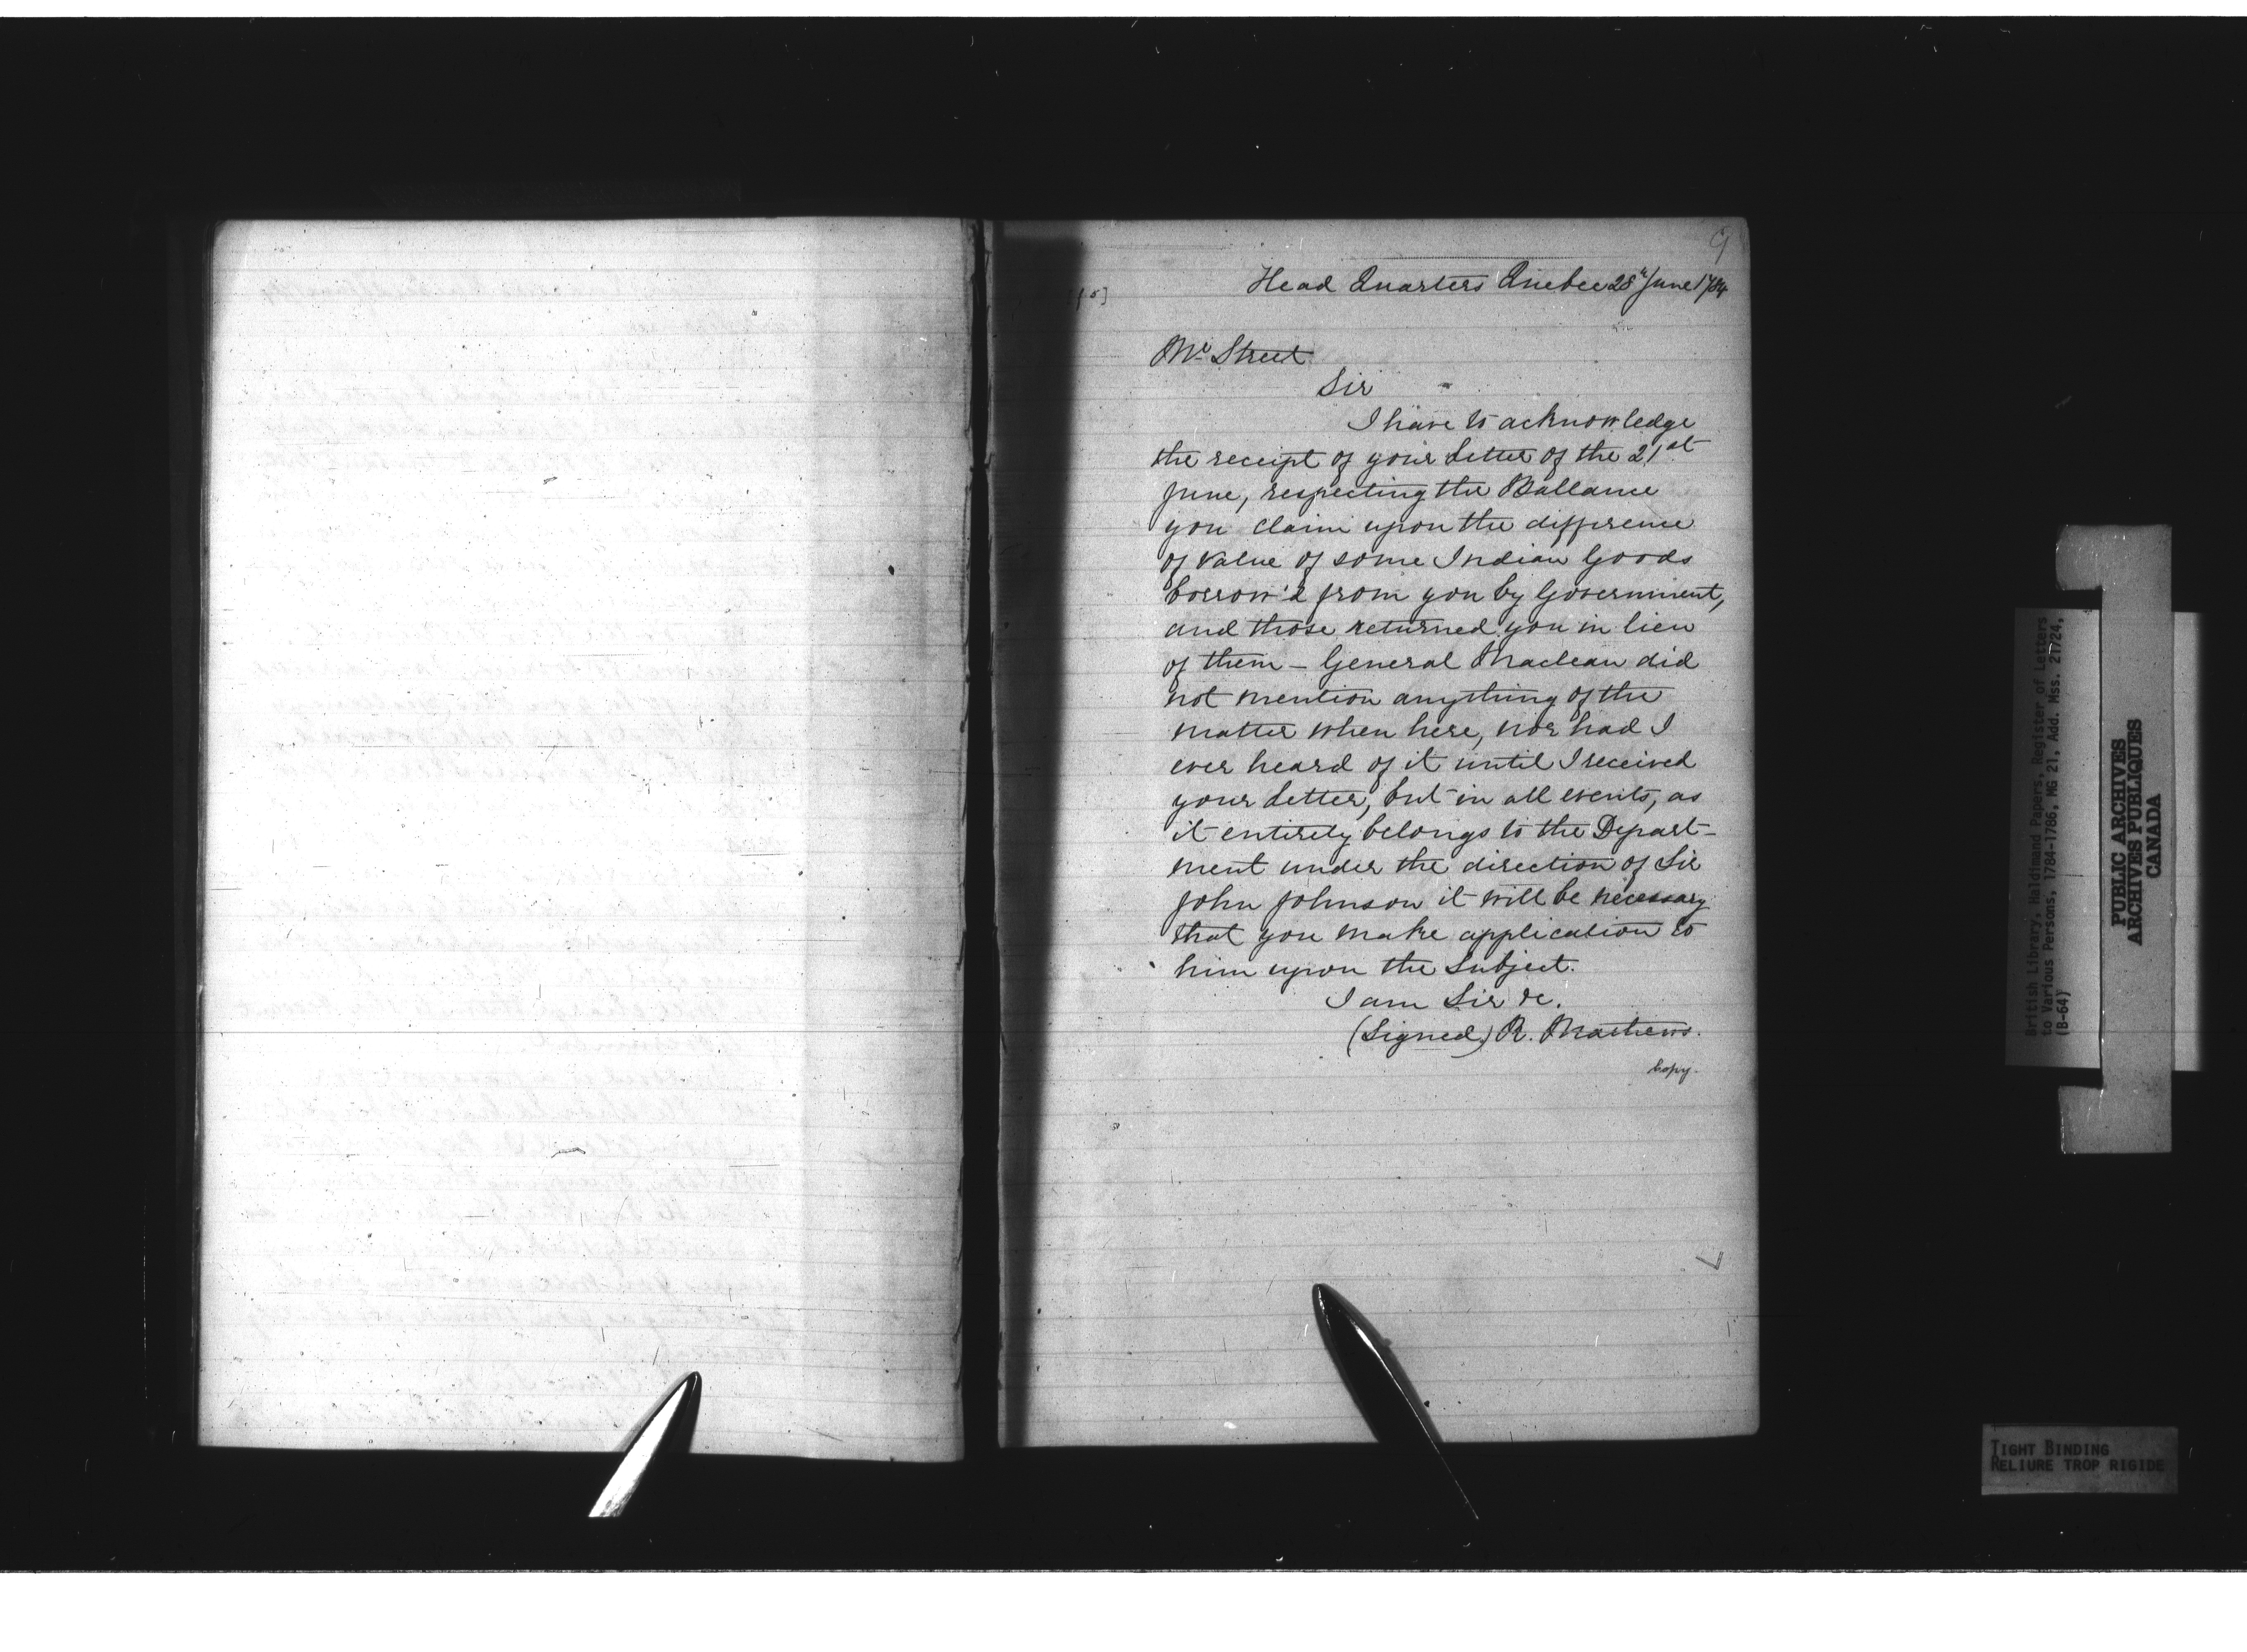 9
Head Quarters Quebec 28th June 1784
Mr Street
Sir
I have to acknowledge
the receipt of your Letter of the 21st
June, respecting the Ballance
you claim upon the difference
of value of some Indian Goods
borrow'd from you by Government,
and those returned you in lieu
of them – General Maclean did
not mention anything of the
matter when here, nor had I
ever heard of it until I received
your Letter, but in all events, as
it entirely belongs to the Depart-
ment under the direction of Sir
John Johnson it will be necessary
that you make application to
him upon the Subject.
I am Sir &c.
(Signed) R. Mathews.
Copy.
British Library, Haldimand Papers, Register of Letters
to Various Persons, 1784-1786, MG 21, Add. Mss. 21724,
(B-64)
PUBLIC ARCHIVES
ARCHIVES PUBLIQUES
CANADA
TIGHT BINDING
RELIURE TROP RIGIDE